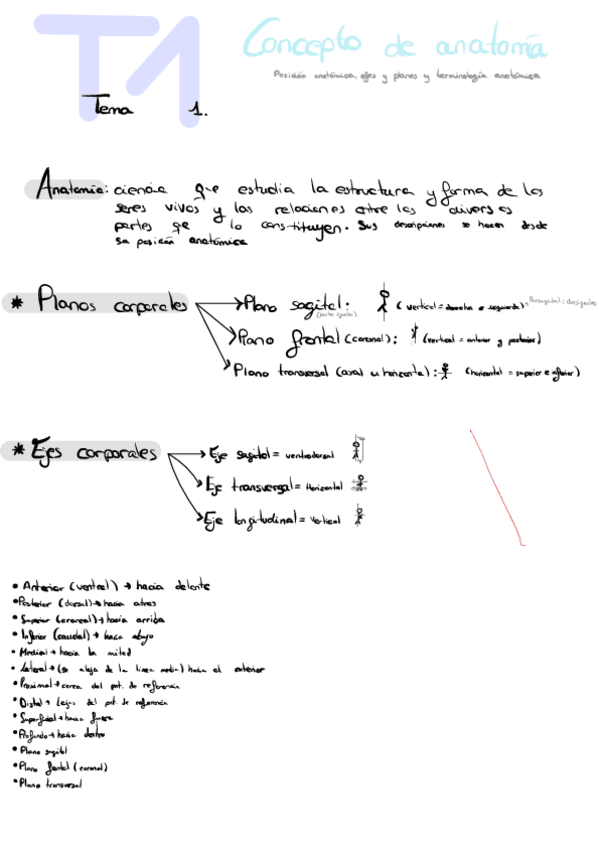 T1
Concepto de anatomía
Posición anatómica, ejes y planos y terminología anatómica
Tema 1.
Anatomía: ciencia que estudia la estructura y forma de los
seres vivos y las relaciones entre las diversas
partes que lo constituyen. Sus descripciones se hacen desde
su posición anatómica
* Planos corporales
Plano sagital: (vertical = derecha e izquierda)
(partes iguales)
Parasagital: desiguales
Plano frontal (coronal): (vertical = anterior y posterior)
Plano transversal (axial u horizontal): (horizontal = superior e inferior)
* Ejes corporales
Eje sagital = ventrodorsal
Eje transversal = Horizontal
Eje longitudinal = Vertical
• Anterior (ventral) → hacia delante
• Posterior (dorsal) → hacia atras
• Superior (craneal) → hacia arriba
• Inferior (caudal) → hacia abajo
• Medial → hacia la mitad
• Lateral → (se aleja de la linea media) hacia el exterior
• Proximal → cerca del pnt. de referencia
• Distal → Lejos del pnt. de referencia
• Superficial → hacia fuera
• Profundo → hacia dentro
• Plano sagital
• Plano frontal (coronal)
• Plano transversal